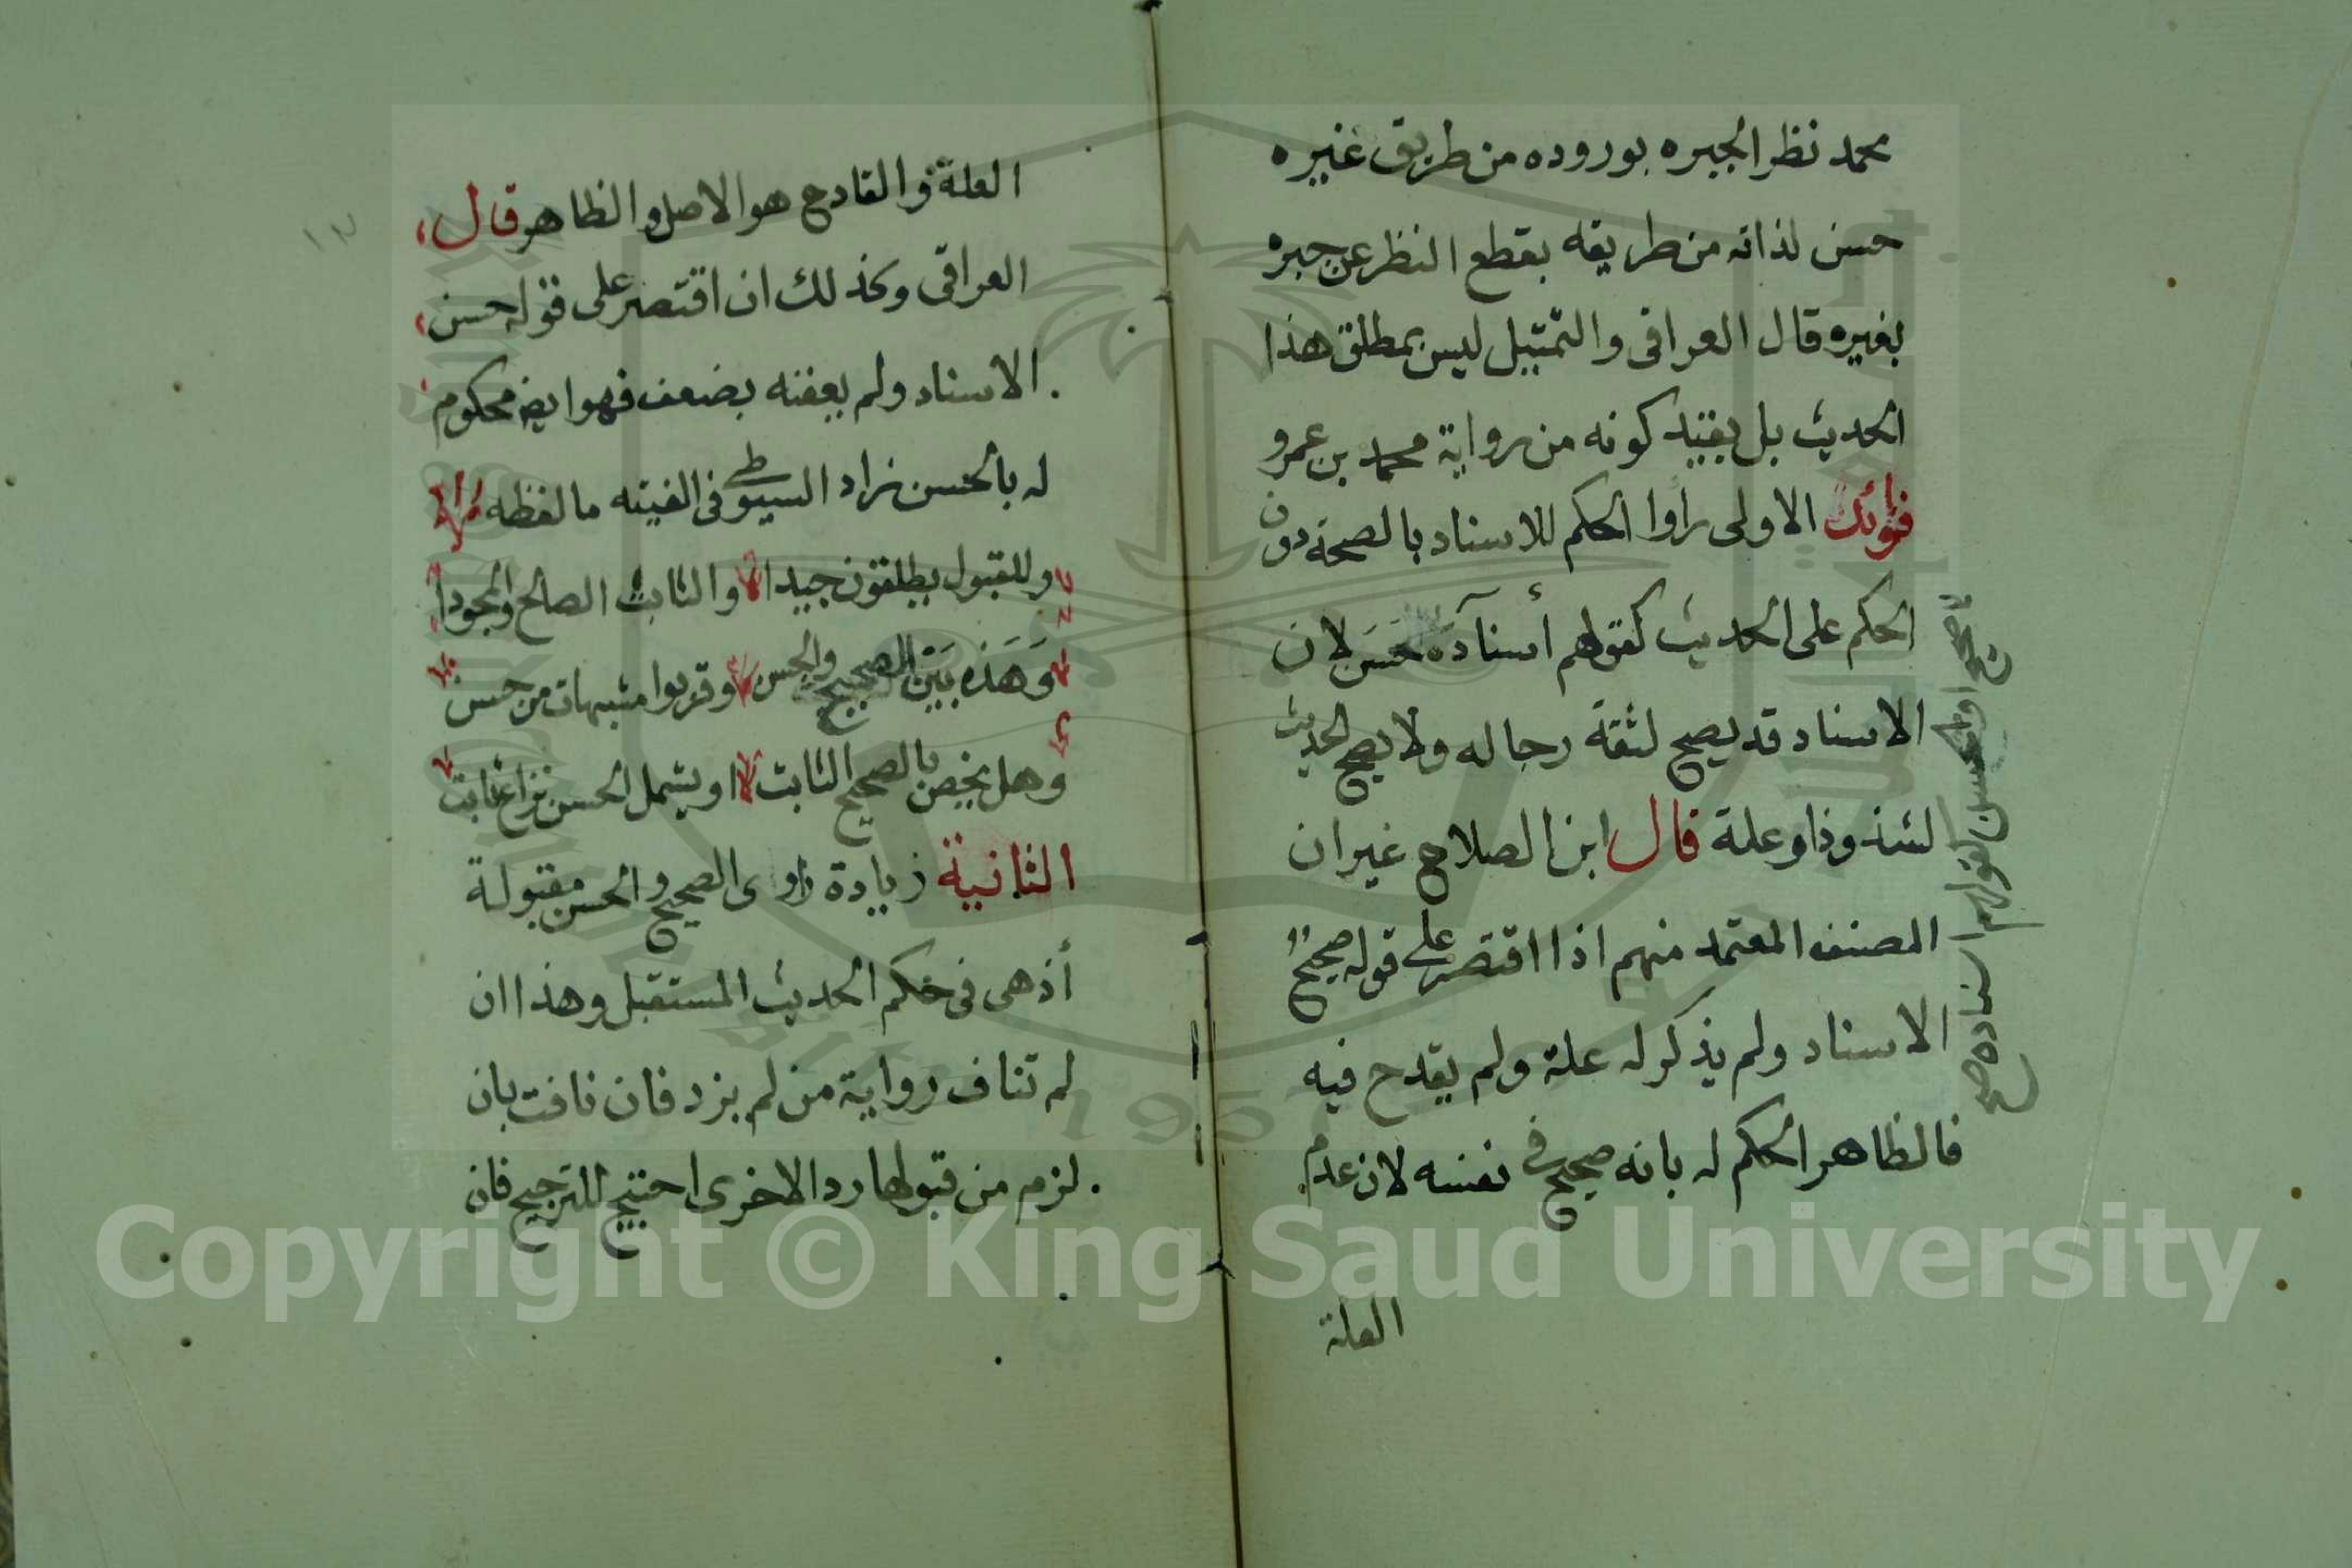 محمد نظرا لجبره بوروده من طريق غيره
حسن لذاته من طريقه بقطع النظر عن جبره
بغيره قال العراقى والتمثيل ليس بمطلق هذا
الحديث بل بقيد كونه من رواية محمد بن عمرو
فوائد الاولى راوا الحكم للاسناد بالصحة دون
الحكم على الحديث كقولهم أسناده حسن لان
الاسناد قد يصح لثقة رجاله ولا يصح الحديث
لشذوذ او علة قال ابن الصلاح غير ان
المصنف المعتمد منهم اذا اقتصر على قوله صحيح
الاسناد ولم يذكر له علة ولم يقدح فيه
فالظاهر الحكم له بانه صحيح فى نفسه لان عدم
العلة
صحيح او حسن كقولهم اسناده صحيح
١٣
العلة والقادح هو الاصل والظاهر قال
العراقى وكذلك ان اقتصر على قوله حسن
الاسناد ولم يعقبه بضعف فهو ايضا محكوم
له بالحسن زاد السيوطى فى الفيته ما لفظه
وللقبول يطلقون جيدا والثابت الصالح والمجودا
وهذه بين الصحيح والحسن وقربوا مشبهات من حسن
وهل يخص بالصحيح الثابت او يشمل الحسن نزاع ثابت
الثانية زيادة راوى الصحيح والحسن مقبولة
أذ هى فى حكم الحديث المستقبل وهذا ان
لم تناف رواية من لم يزد فان نافت بان
لزم من قبولها رد الاخرى احتيج للترجيح فان
1957
Copyright © King Saud University